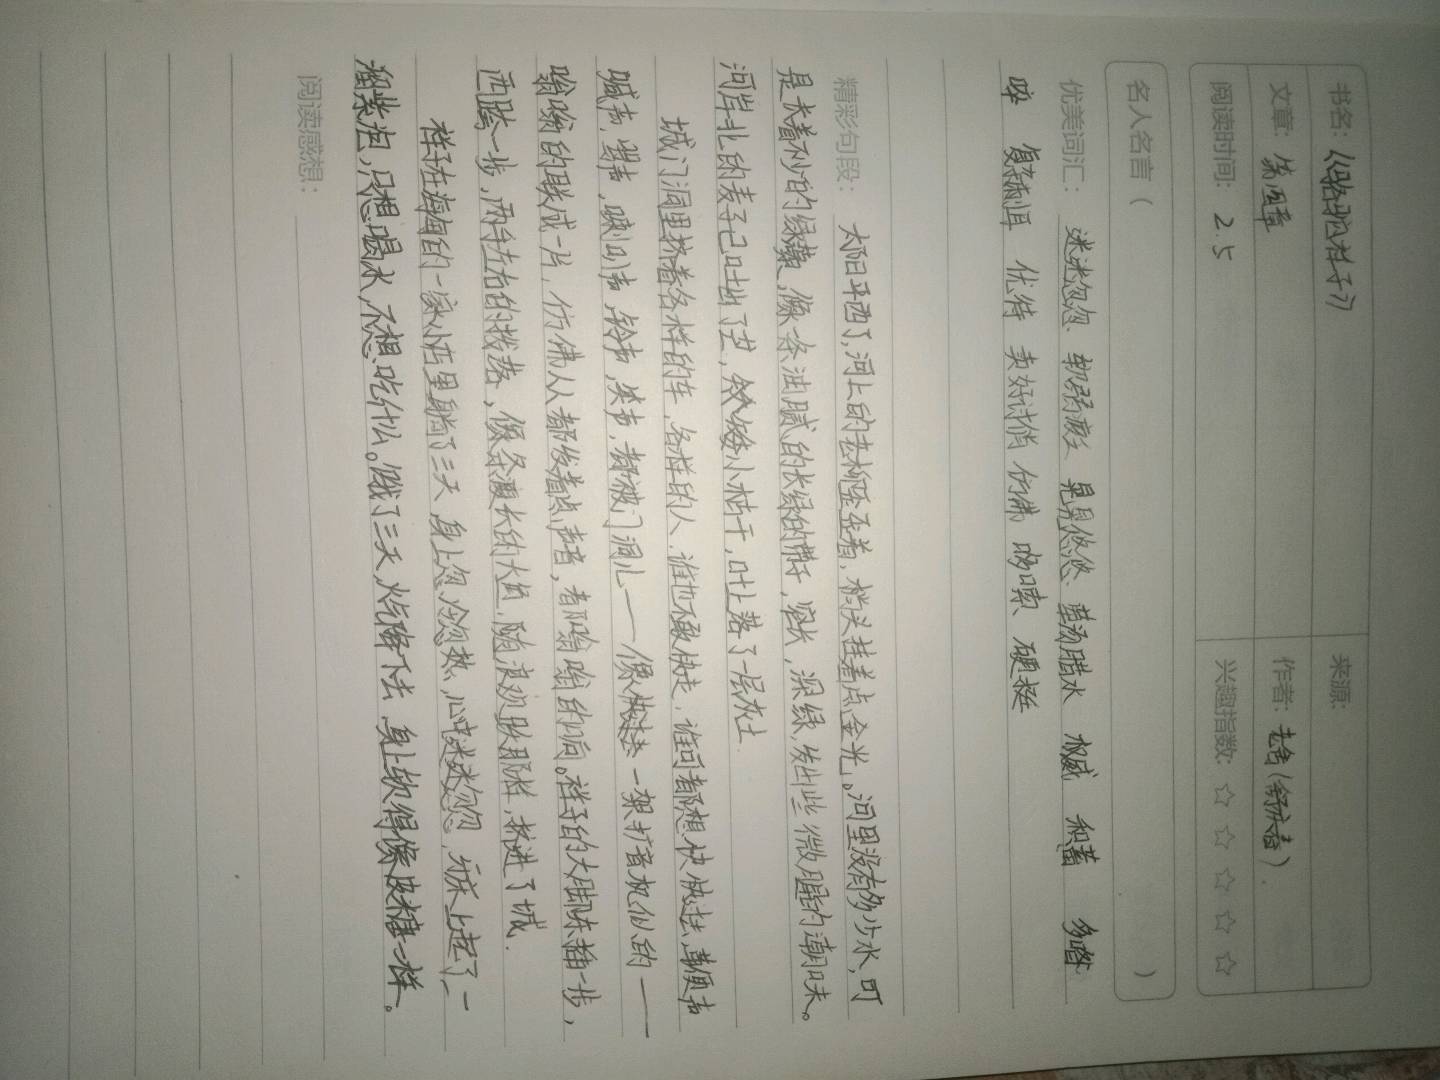 书名:《骆驼祥子》 来源:
文章: 第四章 作者: 老舍(舒庆春).
阅读时间: 2.5 兴趣指数: ☆ ☆ ☆ ☆ ☆
名人名言 ( )
优美词汇: 迷迷忽忽 软弱 晃晃悠悠 菜汤腊水 权威 积蓄 多嘴
啐 优待 卖好讨俏 仿佛 哆嗦 硬挺
精彩句段: 太阳平西了,河上的老柳歪歪着,梢头挂着点金光。河里没有多少水,可
是长着不少的绿藻,像一条油腻的长绿的带子,窄长,深绿,发出些微腥的潮味。
河岸北的麦子已吐出了芒,矮小枯干,叶上落了一层灰土.
城门洞里挤着各样的车,各样的人,谁也不敢快走,谁可都想快快过去,鞭声
喊声,骂声,喇叭声,铃声,笑声,都被门洞儿——像快过去一架扩音机似的——
嗡嗡的联成一片,仿佛人人都发着点声音,都嗡嗡的响。祥子的大脚东插一步,
西跨一步,两手左右的拨落,像条瘦长的大鱼,随浪欢跃那样,挤进了城.
祥子在海甸的一家小店里躺了三天,身上忽冷忽热,心中迷迷忽忽,牙床上起了一
溜紫泡,只想喝水,不想吃什么。饿了三天,火气降下去,身上软得像皮糖一样。
阅读感想: